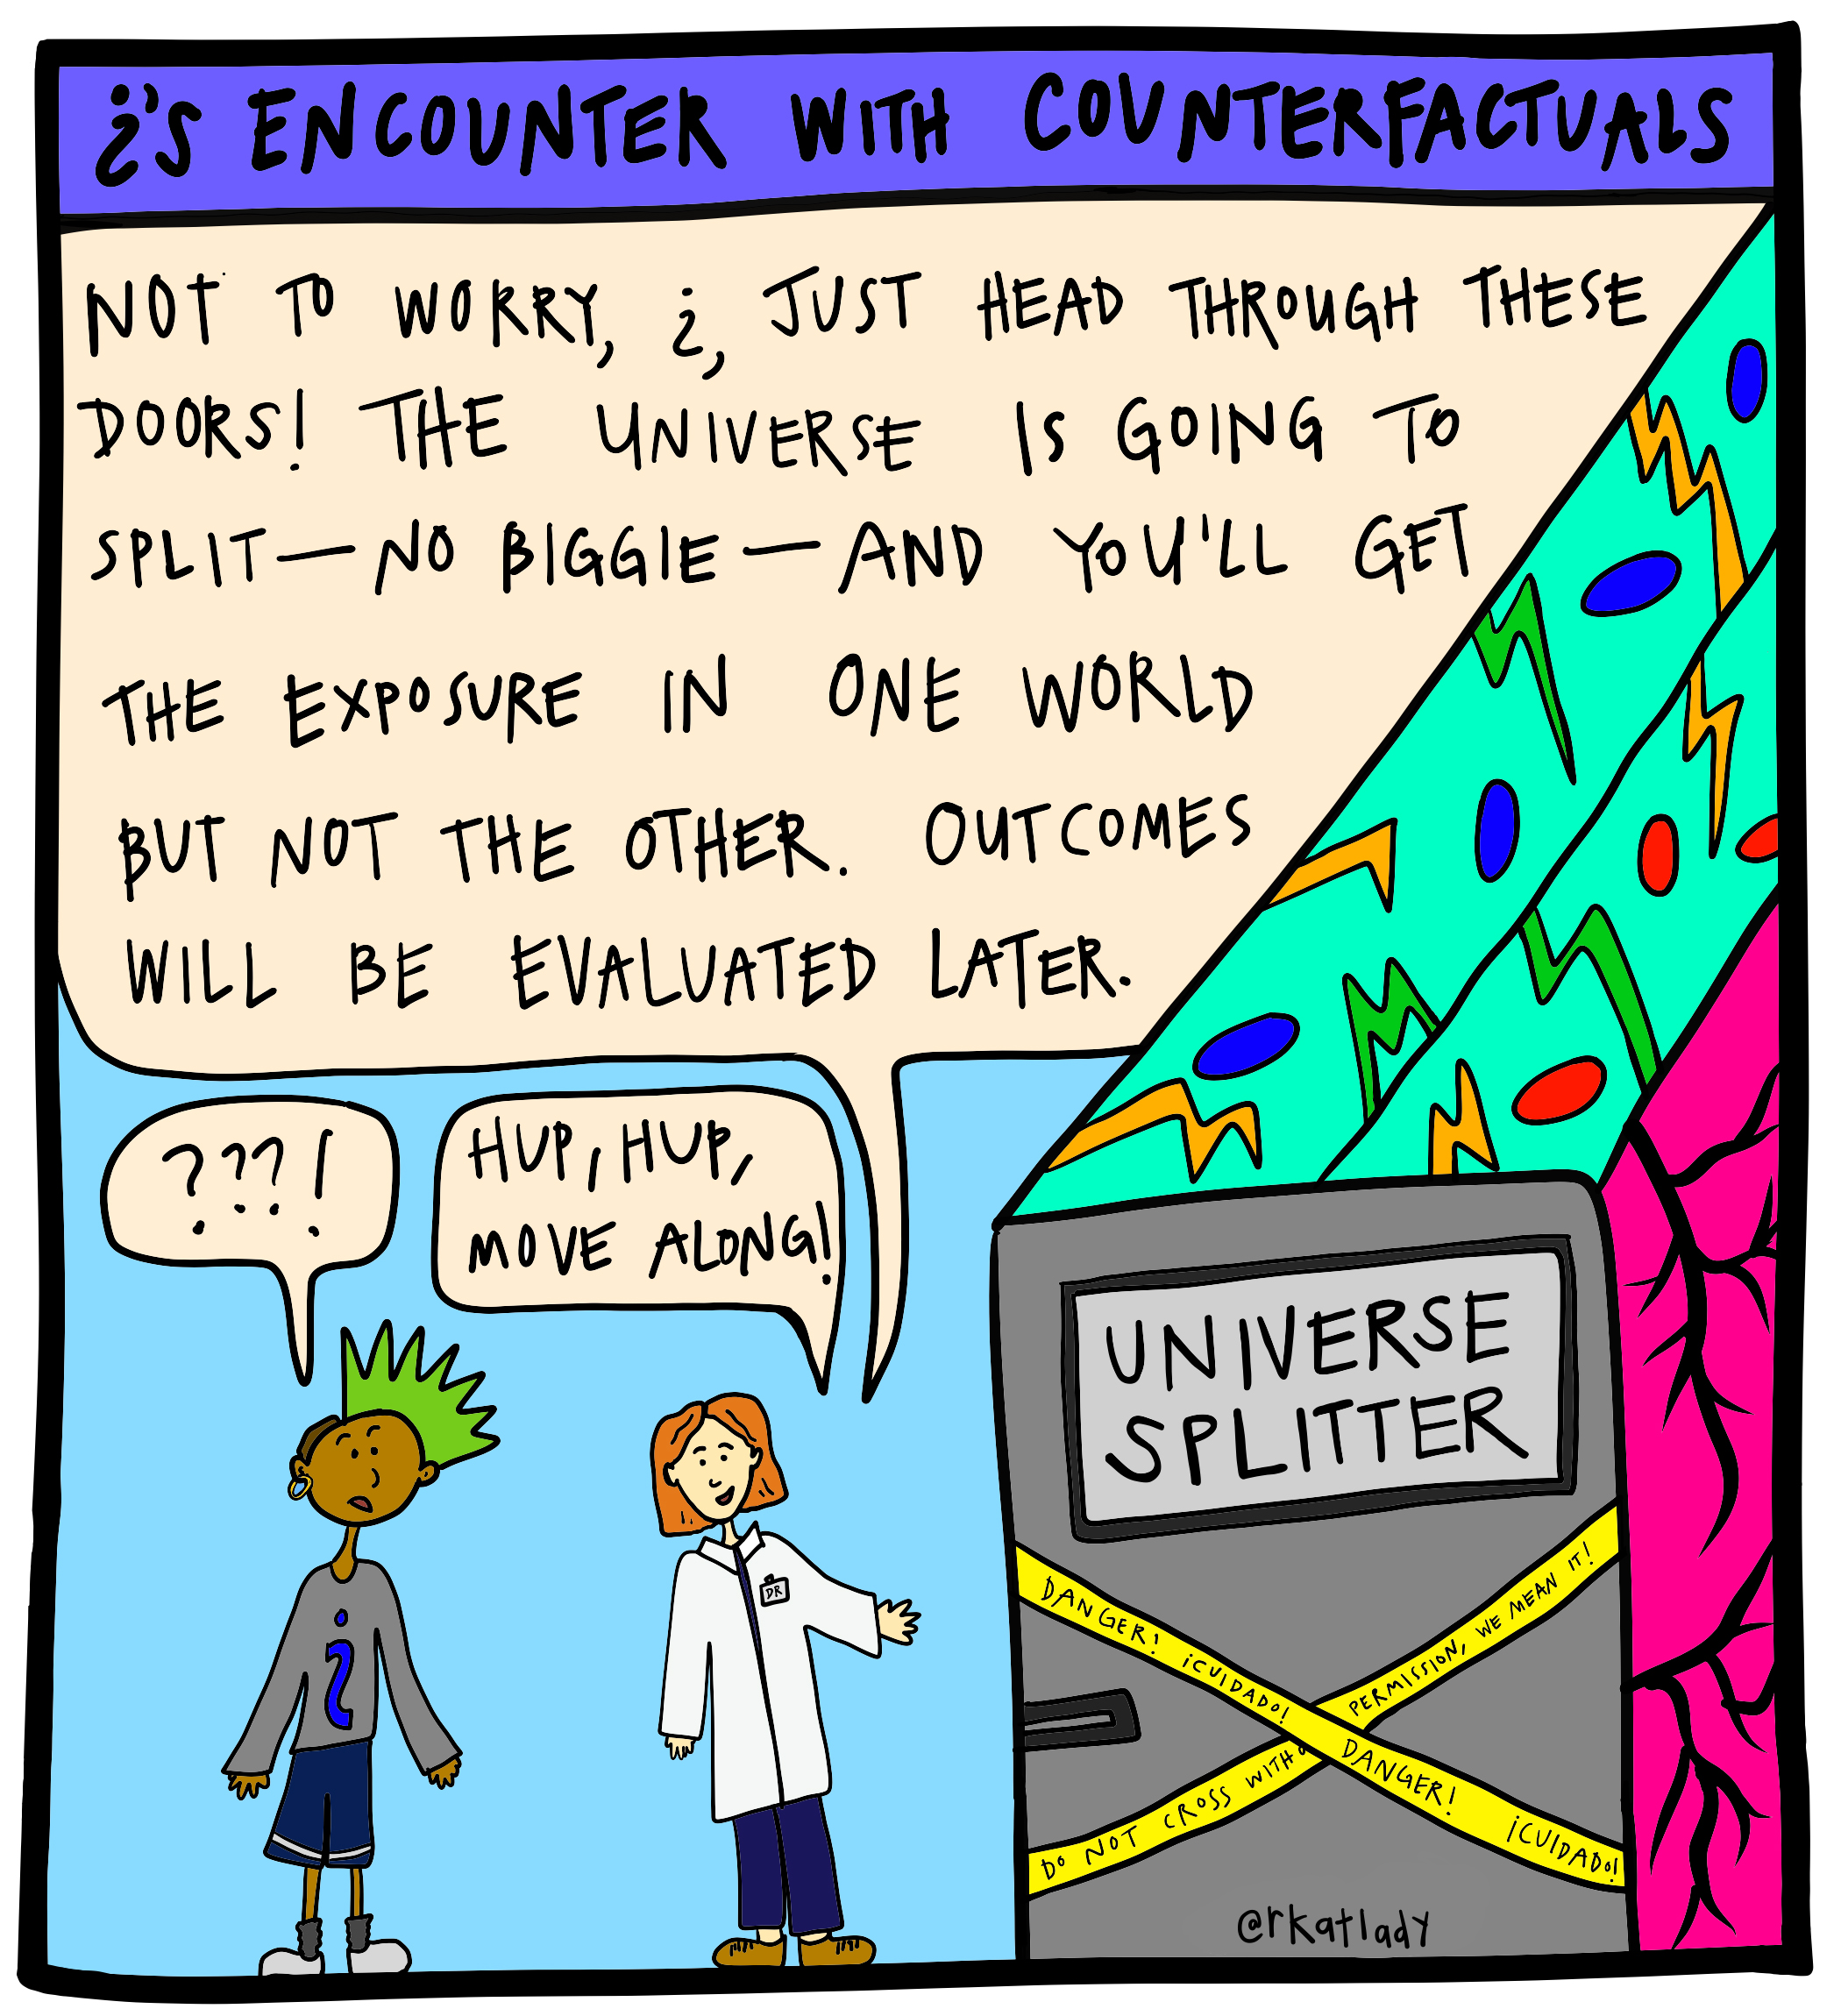 ¿'S ENCOUNTER WITH COUNTERFACTUALS
NOT TO WORRY, ¿, JUST HEAD THROUGH THESE
DOORS! THE UNIVERSE IS GOING TO
SPLIT—NO BIGGIE—AND YOU'LL GET
THE EXPOSURE IN ONE WORLD
BUT NOT THE OTHER. OUTCOMES
WILL BE EVALUATED LATER.
???!
HUP, HUP,
MOVE ALONG!
UNIVERSE
SPLITTER
¿
DR
DANGER! ¡CUIDADO! DANGER! ¡CUIDADO!
DO NOT CROSS WITHO PERMISSION, WE MEAN IT!
@rkatlady